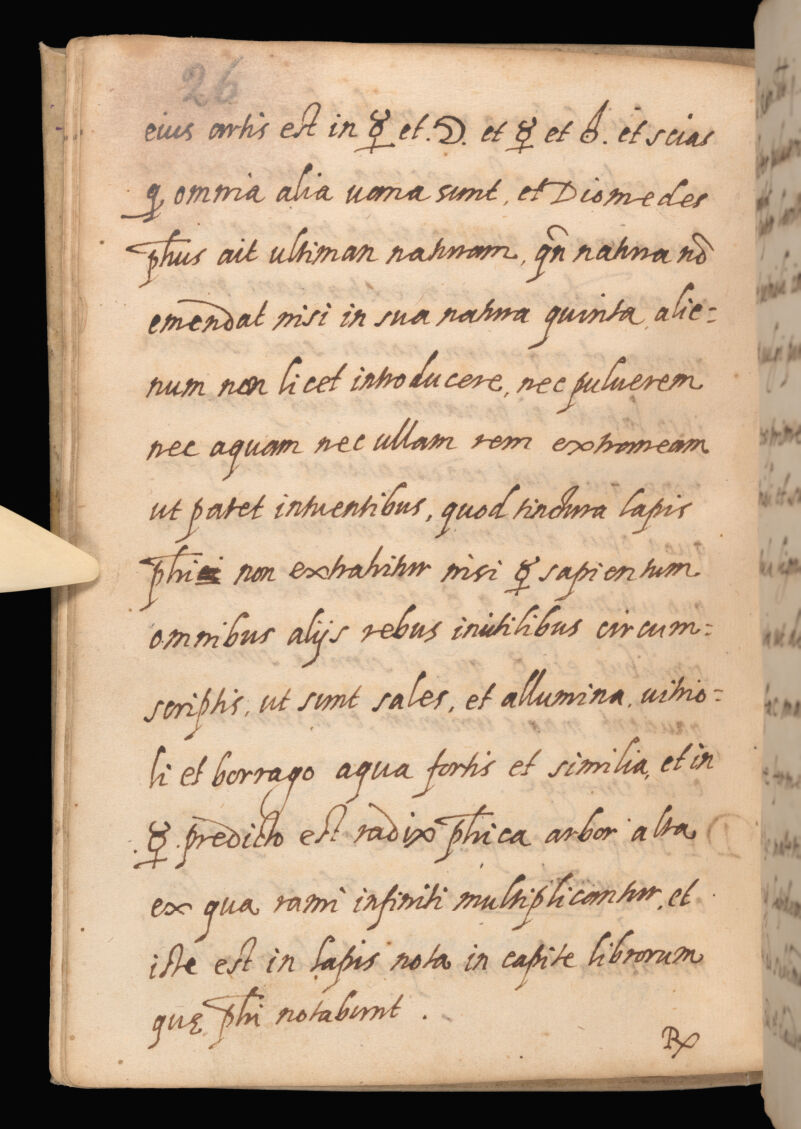 26
eius artis est in ☿ et. ☽. et ☿ et ♁. et scias
q̨ omnia alia uana sunt, et Diomedes
ph̄us ait ultiman naturam, qn̄ natura nō
emendat nisi in sua natura quinta, alie=
num non licet introducere, nec puluerem
nec aquam nec ullam rem extraneam
ut patet intuentibus, quod tinctura lapis
ph̄i non extrahitur nisi ☿ sapientum
omnibus alijs rebus inutilibus circum=
scriptis, ut sunt sales, et allumina, uitrio=
li et borrago aqua fortis et similia, et in
.☿. predicto est radix ph̄ica arbor alta
ex qua rami infiniti multiplicantur, et
iste est in lapis nota in capite librorum
quę ph̄i notabunt .
℞